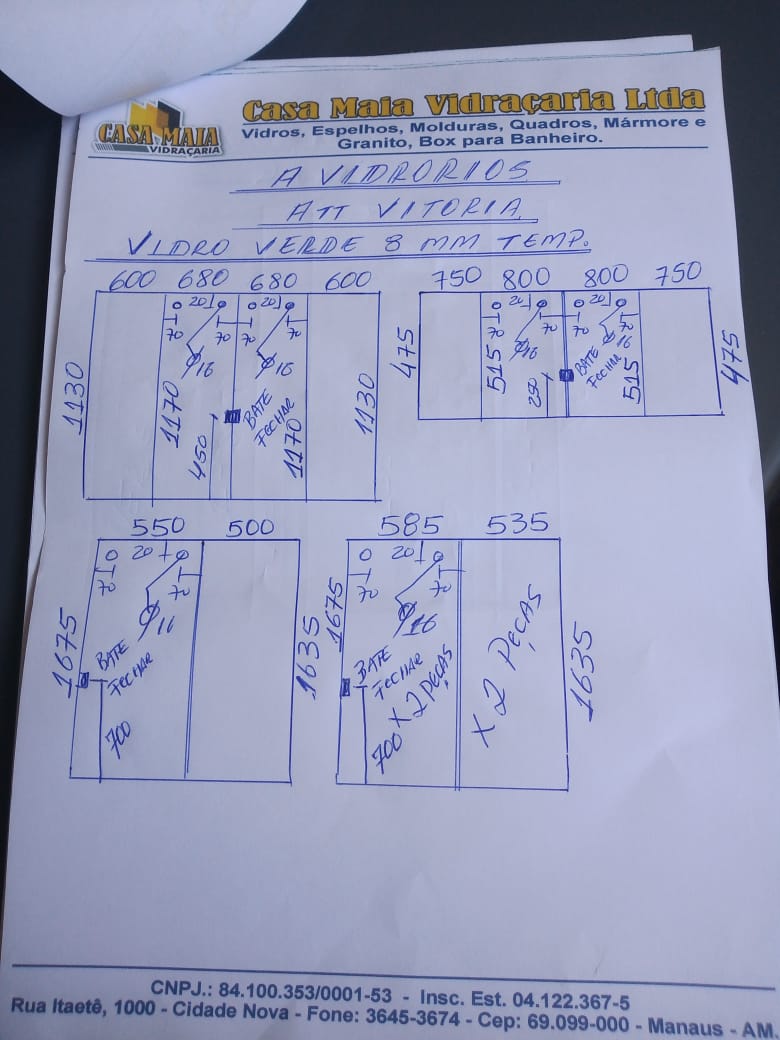 CASA MAIA
VIDRAÇARIA
Casa Maia Vidraçaria Ltda
Vidros, Espelhos, Molduras, Quadros, Mármore e
Granito, Box para Banheiro.
A VIDRORIOS
ATT VITORIA
VIDRO VERDE 8 MM TEMP.
600 680 680 600
20 20
70 70 70 70
Ø16 Ø16
1130 1170 450 BATE FECHAR 1170 1130
750 800 800 750
20 20
70 70 70
Ø16 16
475 515 250 BATE FECHAR 515 475
550 500
20
70 70
Ø16
1675 BATE FECHAR 1635
700
585 535
20
70 70
Ø16
1675 BATE FECHAR X 2 PEÇAS 1635
700 X 2 PEÇAS
CNPJ.: 84.100.353/0001-53 - Insc. Est. 04.122.367-5
Rua Itaetê, 1000 - Cidade Nova - Fone: 3645-3674 - Cep: 69.099-000 - Manaus - AM.